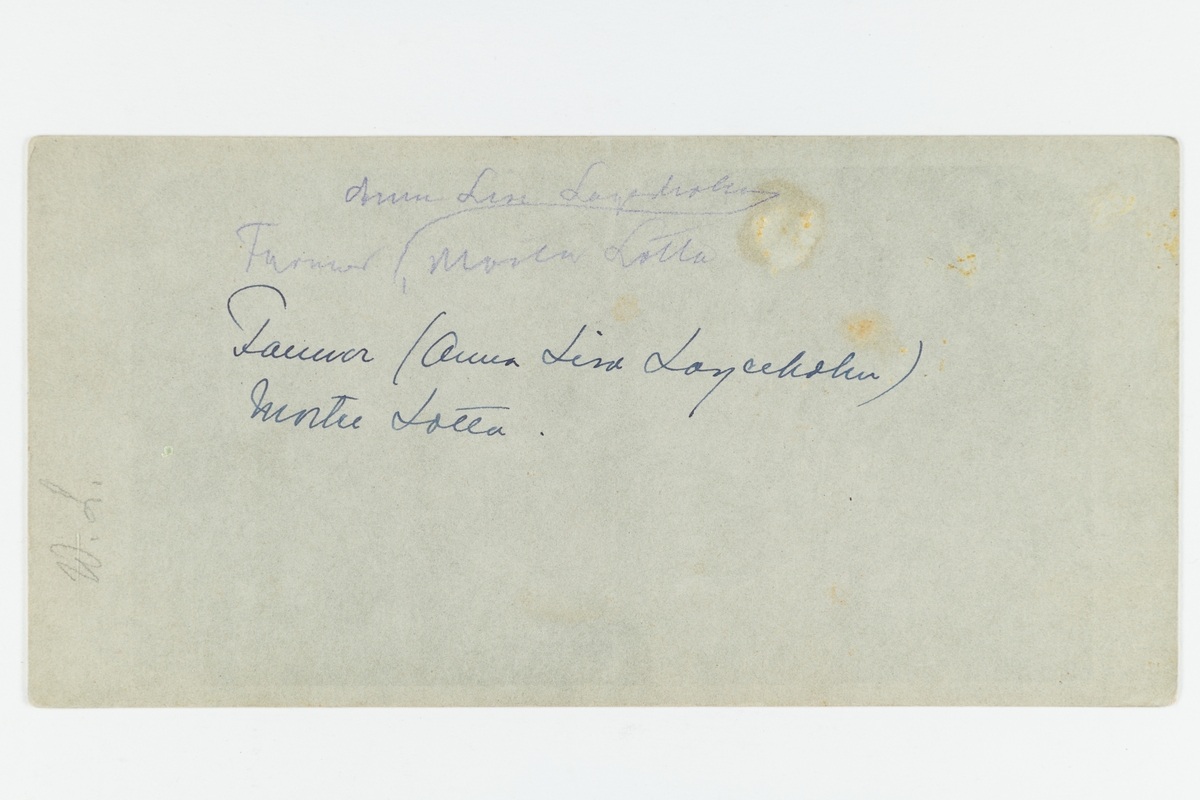 Anna Lisa Lagerholm
Farmor (Moster Lotta
Farmor (Anna Lisa Lagerholm)
Moster Lotta.
W. L.